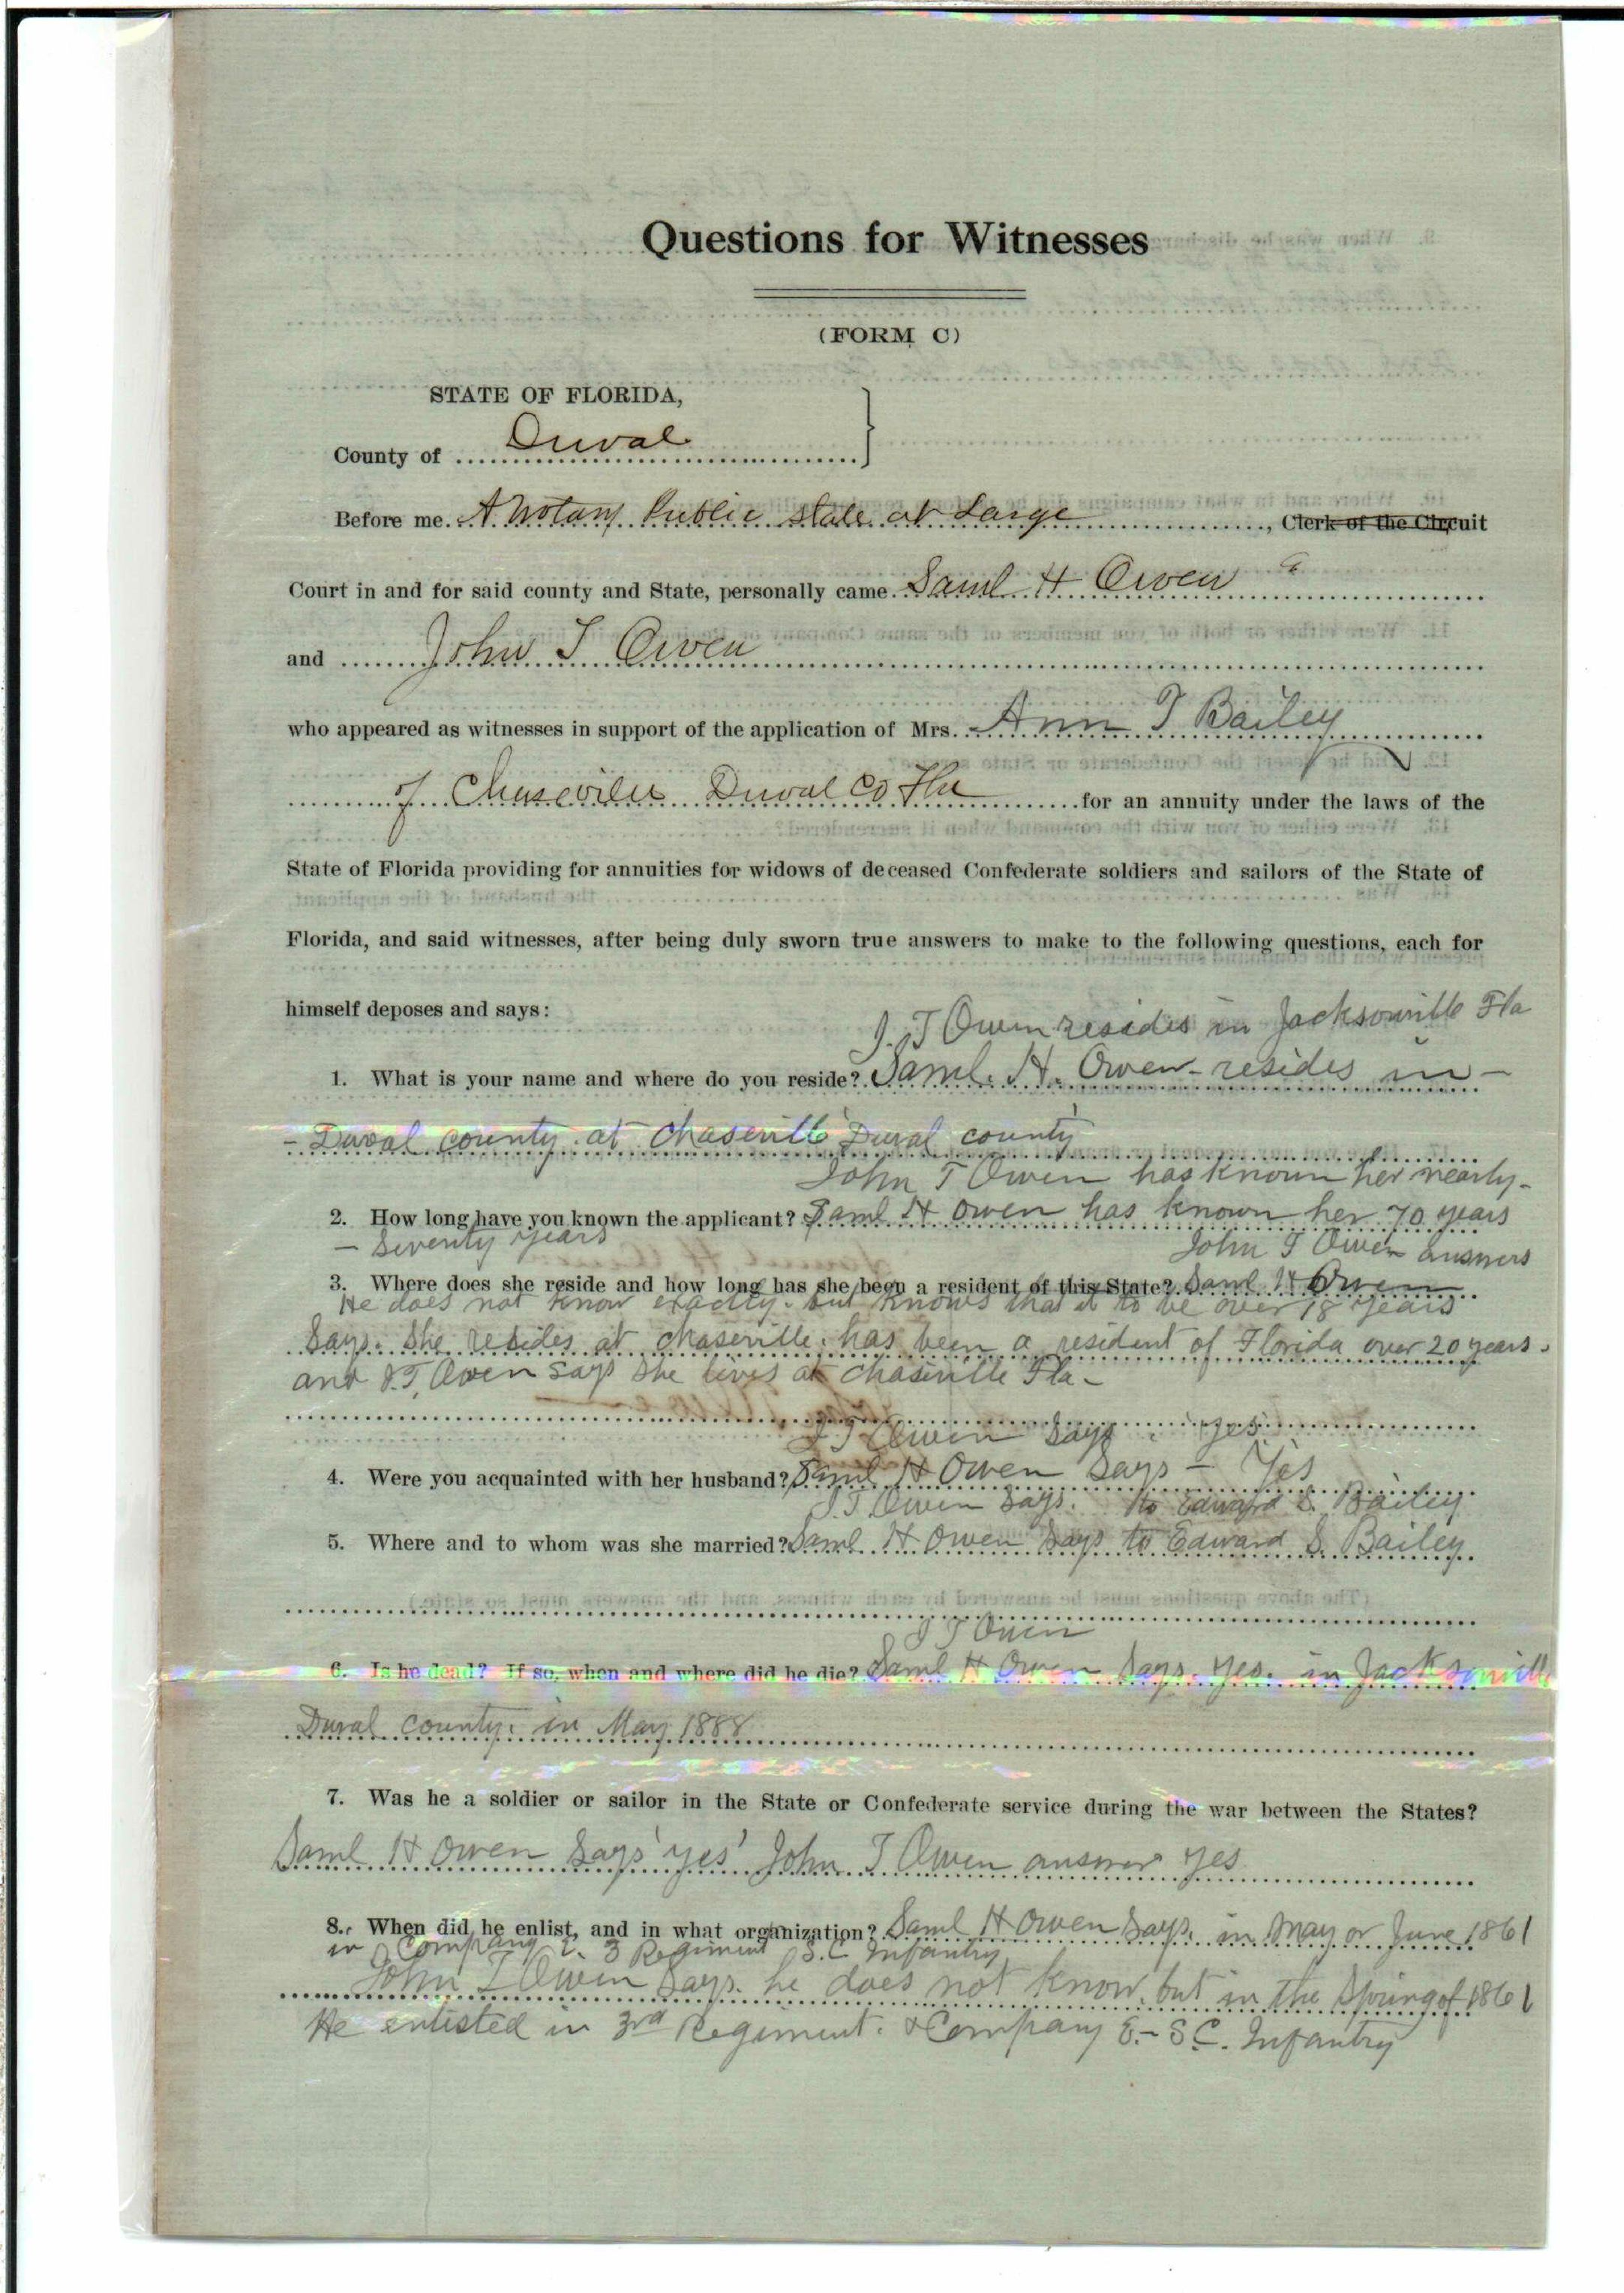 Questions for Witnesses
(FORM C)
STATE OF FLORIDA,
County of Duval
Before me A Notary Public State at Large, Clerk of the Circuit
Court in and for said county and State, personally came Saml H Owen
and John T Owen
who appeared as witnesses in support of the application of Mrs. Ann T Bailey
of Chaseville Duval Co Fla for an annuity under the laws of the
State of Florida providing for annuities for widows of deceased Confederate soldiers and sailors of the State of
Florida, and said witnesses, after being duly sworn true answers to make to the following questions, each for
himself deposes and says:
J. T Owen resides in Jacksonville Fla
1. What is your name and where do you reside? Saml. H. Owen - resides in -
- Duval county at Chaseville Duval county
John T Owen has known her nearly -
2. How long have you known the applicant? Saml H Owen has known her 70 years
- Seventy years
John T Owen answers
3. Where does she reside and how long has she been a resident of this State? Saml H Owen
He does not know exactly. but knows that it to be over 18 years
Says. She resides at Chaseville. has been a resident of Florida over 20 years.
and J.T. Owen says she lives at Chaseville Fla -
J T Owen says yes
4. Were you acquainted with her husband? Saml H Owen says - Yes
J. T Owen says. to Edward S. Bailey
5. Where and to whom was she married? Saml H Owen says to Edward S. Bailey
J T Owen
6. Is he dead? If so, when and where did he die? Saml H Owen says. yes. in Jacksonville
Duval county. in May 1888
7. Was he a soldier or sailor in the State or Confederate service during the war between the States?
Saml H Owen says 'yes' John T Owen answer yes
8. When did he enlist, and in what organization? Saml H Owen says. in May or June 1861
in Company 3 Regiment S.C Infantry
John T Owen says. he does not know. but in the Spring of 1861
He enlisted in 3rd Regiment. & Company E. - S.C. Infantry